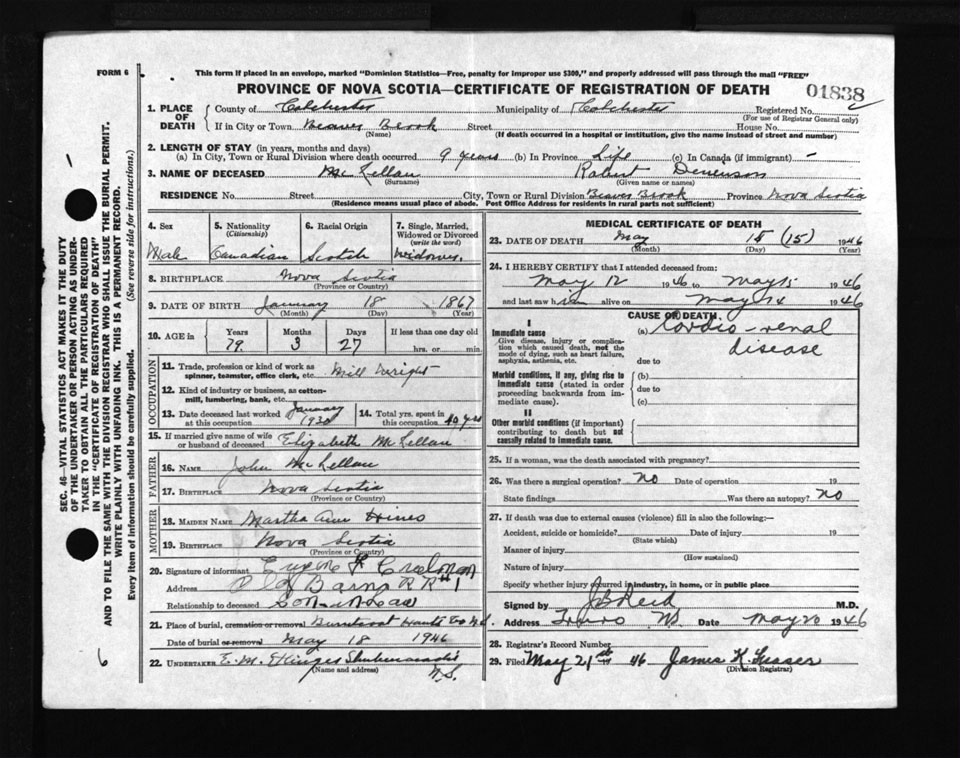 FORM 6
This form if placed in an envelope, marked "Dominion Statistics—Free, penalty for improper use $300," and properly addressed will pass through the mail "FREE"
PROVINCE OF NOVA SCOTIA—CERTIFICATE OF REGISTRATION OF DEATH
01838
1. PLACE OF DEATH
County of Colchester Municipality of Colchester Registered No.
(For use of Registrar General only)
If in City or Town Beaver Brook Street House No.
(Name) (If death occurred in a hospital or institution, give the name instead of street and number)
2. LENGTH OF STAY (in years, months and days)
(a) In City, Town or Rural Division where death occurred 9 years (b) In Province Life (c) In Canada (if immigrant) —
3. NAME OF DECEASED McLellan Robert
(Surname) (Given name or names)
RESIDENCE No. Street City, Town or Rural Division Beaver Brook Province Nova Scotia
(Residence means usual place of abode. Post Office Address for residents in rural parts not sufficient)
4. Sex
Male
5. Nationality
(Citizenship)
Canadian
6. Racial Origin
Scotch
7. Single, Married, Widowed or Divorced
(write the word)
Widower
8. BIRTHPLACE Nova Scotia
(Province or Country)
9. DATE OF BIRTH January 18 1867
(Month) (Day) (Year)
10. AGE in Years Months Days If less than one day old
79 3 27 hrs. or min.
OCCUPATION
11. Trade, profession or kind of work as spinner, teamster, office clerk, etc. Mill Wright
12. Kind of industry or business, as cotton-mill, lumbering, bank, etc.
13. Date deceased last worked at this occupation January 1930
14. Total yrs. spent in this occupation 40 yrs
15. If married give name of wife or husband of deceased Elizabeth McLellan
FATHER
16. NAME John McLellan
17. BIRTHPLACE Nova Scotia
(Province or Country)
MOTHER
18. MAIDEN NAME Martha Ann Hines
19. BIRTHPLACE Nova Scotia
(Province or Country)
20. Signature of informant Creelman
Address Old Barns RR#1
Relationship to deceased Son-in-law
21. Place of burial, cremation or removal Hants Co N.S.
Date of burial or removal May 18 1946
22. UNDERTAKER E.M. Shubenacadie
(Name and address) N.S.
MEDICAL CERTIFICATE OF DEATH
23. DATE OF DEATH May 15 (15) 1946
(Month) (Day) (Year)
24. I HEREBY CERTIFY that I attended deceased from:
May 12 1946 to May 15 1946
and last saw him alive on May 14 1946
CAUSE OF DEATH
I
Immediate cause
Give disease, injury or complication which caused death, not the mode of dying, such as heart failure, asphyxia, asthenia, etc.
(a) Cardio-renal
disease
due to
Morbid conditions, if any, giving rise to immediate cause (stated in order proceeding backwards from immediate cause).
(b)
due to
(c)
II
Other morbid conditions (if important) contributing to death but not causally related to immediate cause.
25. If a woman, was the death associated with pregnancy?
26. Was there a surgical operation? No Date of operation 19
State findings Was there an autopsy? No
27. If death was due to external causes (violence) fill in also the following:—
Accident, suicide or homicide? Date of injury 19
(State which)
Manner of injury
(How sustained)
Nature of injury
Specify whether injury occurred in industry, in home, or in public place
Signed by J B Reid M.D.
Address Truro NS Date May 20 1946
28. Registrar's Record Number
29. Filed May 21st 46 James K. Fraser
(Division Registrar)
SEC. 46—VITAL STATISTICS ACT MAKES IT THE DUTY
OF THE UNDERTAKER OR PERSON ACTING AS UNDER-
TAKER TO OBTAIN ALL THE PARTICULARS REQUIRED
IN THE "CERTIFICATE OF REGISTRATION OF DEATH"
AND TO FILE THE SAME WITH THE DIVISION REGISTRAR WHO SHALL ISSUE THE BURIAL PERMIT.
WRITE PLAINLY WITH UNFADING INK. THIS IS A PERMANENT RECORD.
Every item of information should be carefully supplied. (See reverse side for instructions.)
6